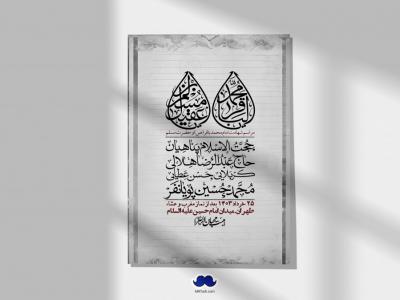 محمد الباقر
مسلم بن عقیل
مراسم شهادت امام محمد باقر (ع) و حضرت مسلم
حجت الاسلام پناهیان
حاج عبدالرضا هلالی
کربلایی حسن عطایی
محمدحسین پویانفر
۲۵ خرداد ۱۴۰۳ بعد از نماز مغرب و عشاء
طهران، میدان امام حسین علیه السلام